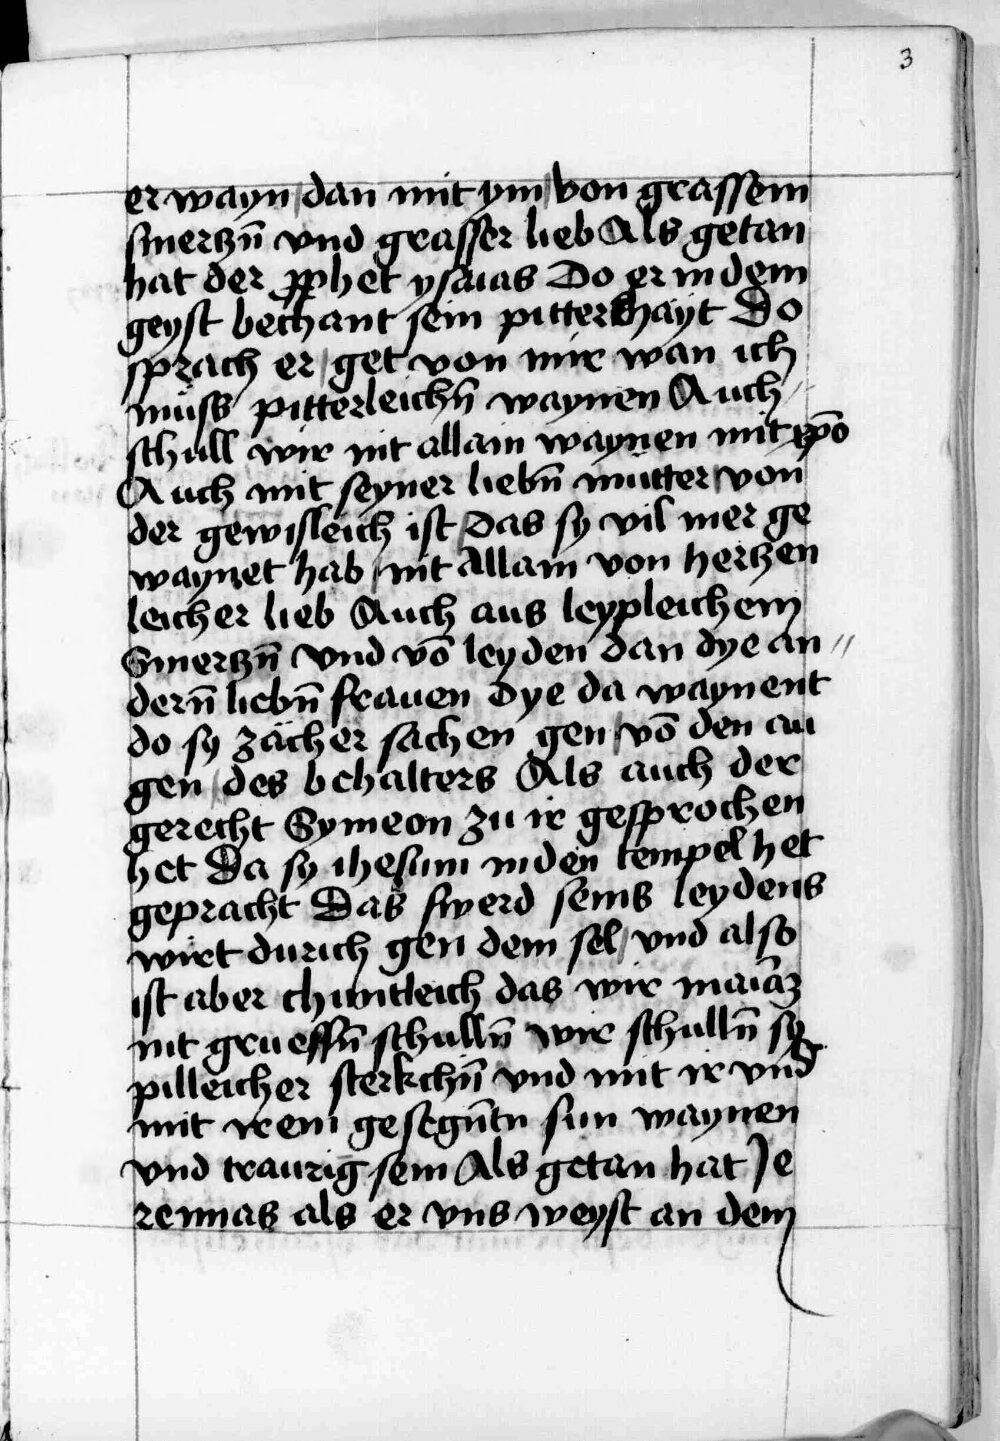 3
er wayn / dan mit ym / von grassem
smertzn̄ vnd grasser lieb Als getan
hat der ꝓphet ysaias Do er in dem
geyst bechant sein pitterkhayt Do
sprach er / get von mir wan ich
muͤss pitterleichn̄ waynen Auch /
schull wir nit allain waynen mit xp̄o
Auch mit seyner liebn̄ muͤtter / von
der gewisleich ist / Das sy vil mer ge
waynet hab / nit Allain von hertzen
leicher lieb Auch aus leypleichem
Smertzn̄ vnd vō leyden dan dye an //
dern̄ liebn̄ frauen Dye da waynent
do sy zächer sachen gen / vō den au
gen / des behalters Als auch der
gerecht Symeon zu ir gesprochen
het Da sy ihesum in den tempel het
gepracht Das swerd seins leydens
wirt durich gen dein sel / vnd also
ist aber chuntleich das wir mariaz
nit grueffn̄ schulln̄ wir schulln̄ sy
pilleicher sterkchn̄ vnd mit ir vnd
mit irem gesegn̄tn sun waynen
vnd traurig sein Als getan hat Je
remias als er vns weyst an dem